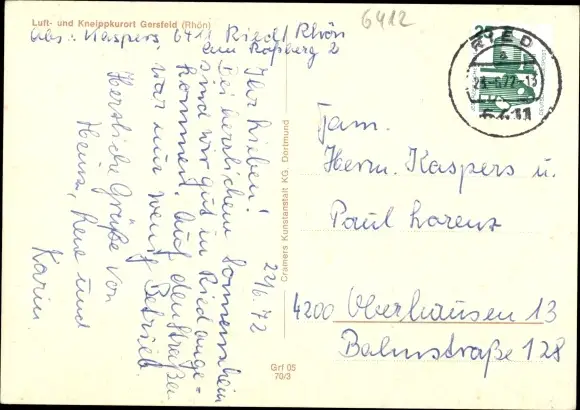 6412
Luft- und Kneippkurort Gersfeld (Rhön)
Abs.: Kaspers, 6411 Ried/Rhön
am Roßberg 2
22/6.72
Ihr Lieben!
Bei herrlichem Sonnenschein
sind wir gut in Ried ange-
kommen. Auf den Straßen
war nur wenig Betrieb.
Herzliche Grüße von
Heinz, Rene und
Karin
Cramers Kunstanstalt KG. Dortmund
Grf 05
70/3
RIED
a
6411
Fam.
Herm. Kaspers u.
Paul Lorenz
4200 Oberhausen 13
Bahnstraße 128